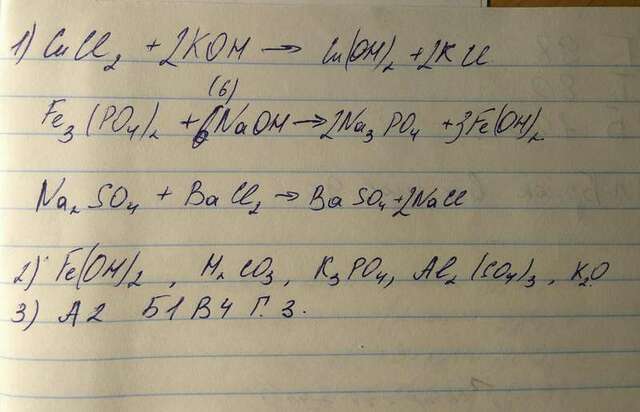 1) CuCl₂ + 2KOH → Cu(OH)₂ + 2KCl
(6)
Fe₃(PO₄)₂ + 6NaOH → 2Na₃PO₄ + 3Fe(OH)₂
Na₂SO₄ + BaCl₂ → BaSO₄ + 2NaCl
2) Fe(OH)₂, H₂CO₃, K₃PO₄, Al₂(SO₄)₃, K₂O
3) А2 Б1 В4 Г.3.